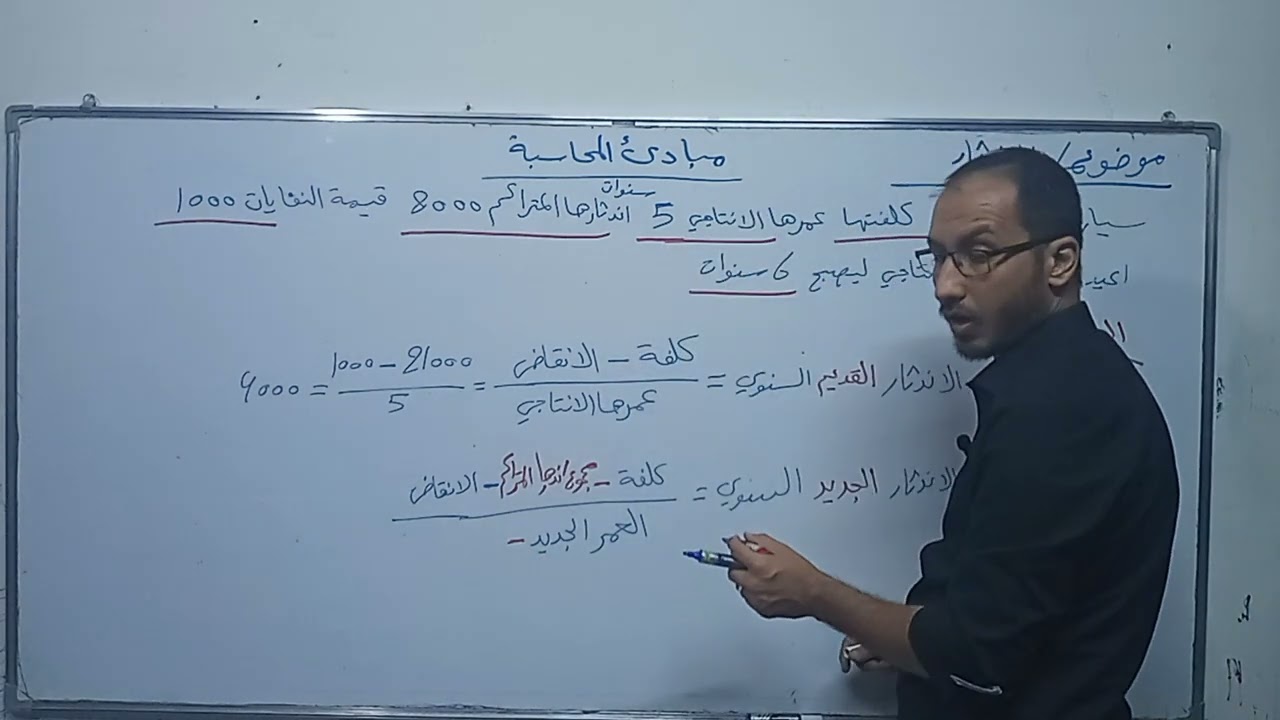 مبادئ المحاسبة
موضوع /
كلفتها عمرها الانتاجي 5 سنوات اندثارها المتراكم 8000 قيمة النفايات 1000
اعيد ليصبح 6 سنوات
الاندثار القديم السنوي = كلفة - الانقاض / عمرها الانتاجي = 21000 - 1000 / 5 = 4000
الاندثار الجديد السنوي = كلفة - مجموع اندثارها المتراكم - الانقاض / العمر الجديد -